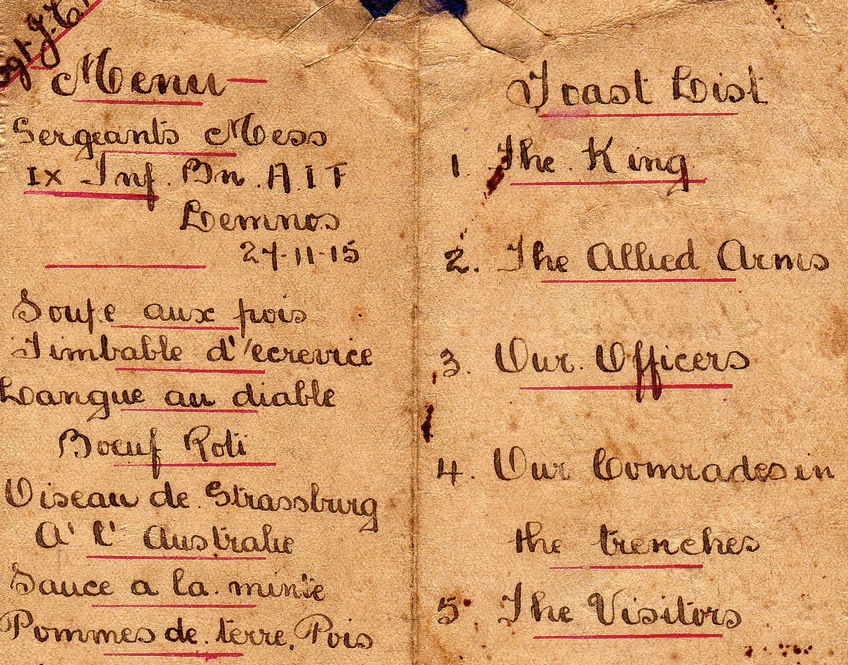 Sgt. J.
Menu
Sergeants Mess
IX Inf. Bn. A I F
Lemnos
27-11-15
Soupe aux pois
Timbable d'ecrevice
Langue au diable
Boeuf Roti
Oiseau de Strassburg
A' L' Australie
Sauce a la minte
Pommes de terre. Pois
Toast List
1. The King
2. The Allied Arms
3. Our Officers
4. Our Comrades in
the trenches
5. The Visitors